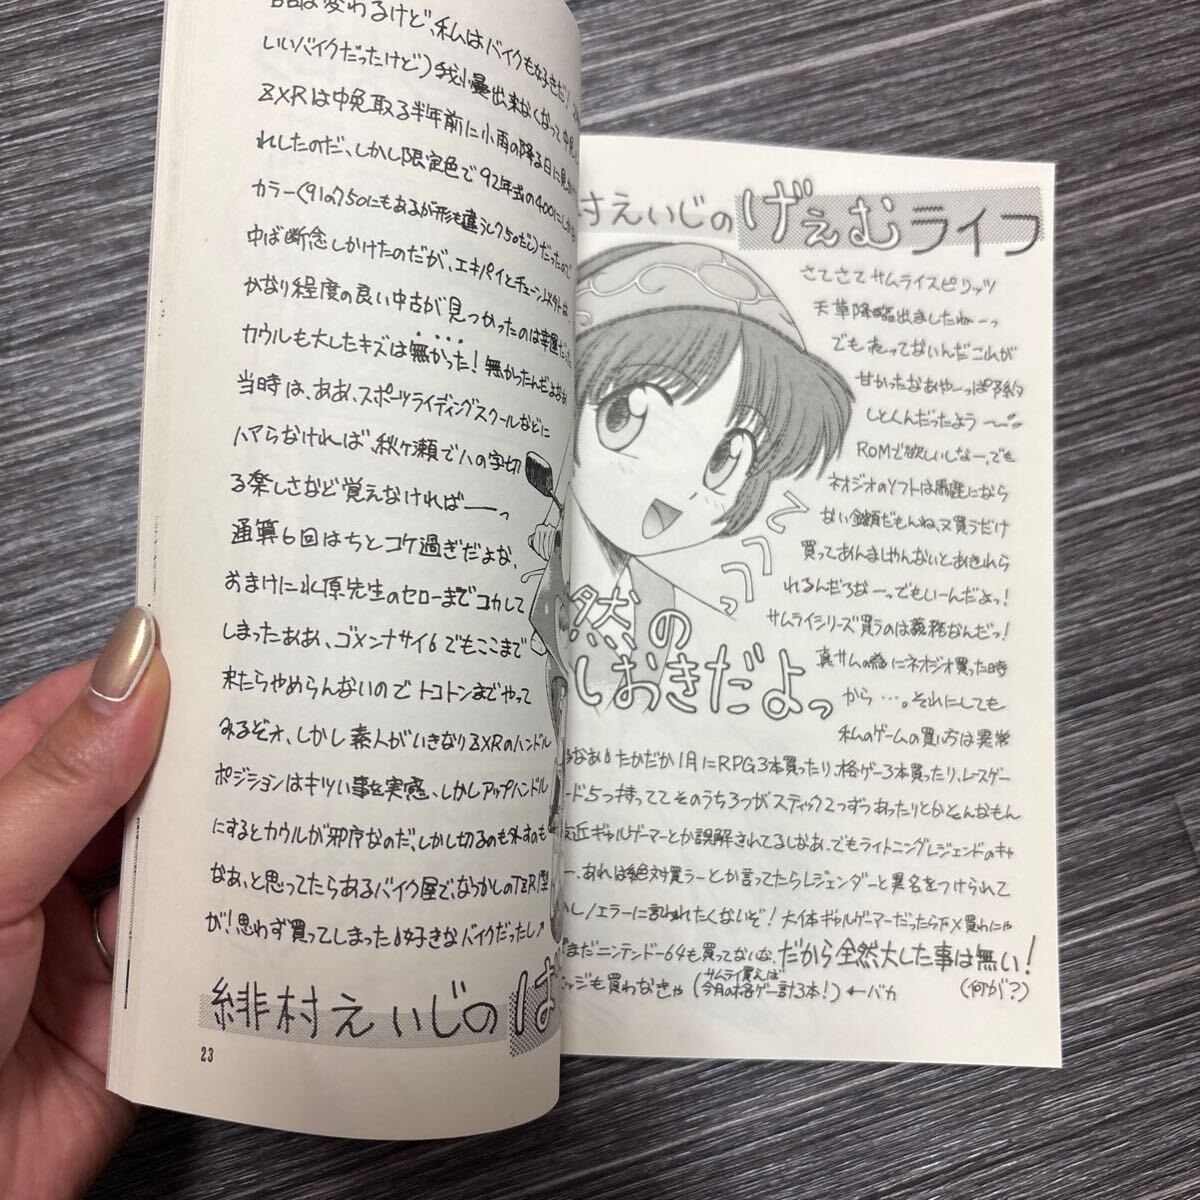 話は変わるけど、私はバイクも好きだ!
いいバイクだったけど)我慢出来なくなって中免
ZXRは中免取る半年前に小雨の降る日に見
れしたのだ、しかし限定色で92年式の400にしか
カラー(91の750にもあるが形も違うし750だし)だったので
中ば断念しかけたのだが、エキパイとチェーン
かなり程度の良い中古が見つかったのは幸運だった
カウルも大したキズは無かった!無かったんだよなあ
当時は、ああ、スポーツライディングスクールなどに
ハマらなければ、秋ヶ瀬で八の字切
る楽しさなど覚えなければ――っ
通算6回はちとコケ過ぎだよな、
おまけに水原先生のセローまでコカして
しまったああ、ゴメンナサイ6でもここまで
来たらやめらんないのでトコトンまでやって
みるぞオ、しかし素人がいきなりZXRのハンドル
ポジションはキツい事を実感、しかしアップハンドル
にするとカウルが邪魔なのだ、しかし切るのも外すのも
なあ、と思ってたらあるバイク屋で、なつかしのTZR1型
が!思わず買ってしまった6好きなバイクだったし
緋村えいじのば
23
村えいじのげえむライフ
さてさてサムライスピリッツ
天草降臨出ましたねーっ
でも売ってないんだこれが
甘かったなあやーっぱ予約
しとくんだったよう〜
ROMで欲しいしなー、でも
ネオジオのソフトは馬鹿になら
ない金額だもんね、又買うだけ
買ってあんましやんないとあきれら
れるんだろなーってでもいーんだよっ!
サムライシリーズ買うのは義務なんだっ!
真サムの為にネオジオ買った時
から…。それにしても
私のゲームの買い方は異常
だなあ6たかだか1月にRPG3本買ったり、格ゲー3本買ったり、レースゲー
ード5つ持っててそのうち3つがスティック2つずつあったりとかそんなもん
近ギャルゲーマーとか誤解されてるしなあ、でもライトニングレジェンドのキャ
ー、あれは絶対買うーとか言ってたらレジェンダーと異名をつけられて
ノエラーに言われたくないぞ!大体ギャルゲーマーだったら下×買わにゃ
まだニンテンドー64も買ってないな、だから全然大した事は無い!
ッジも買わなきゃ(サムライ買えば今月の格ゲー計3本!)←バカ
(何が?)
てへっっ
然の
しおきだよっ